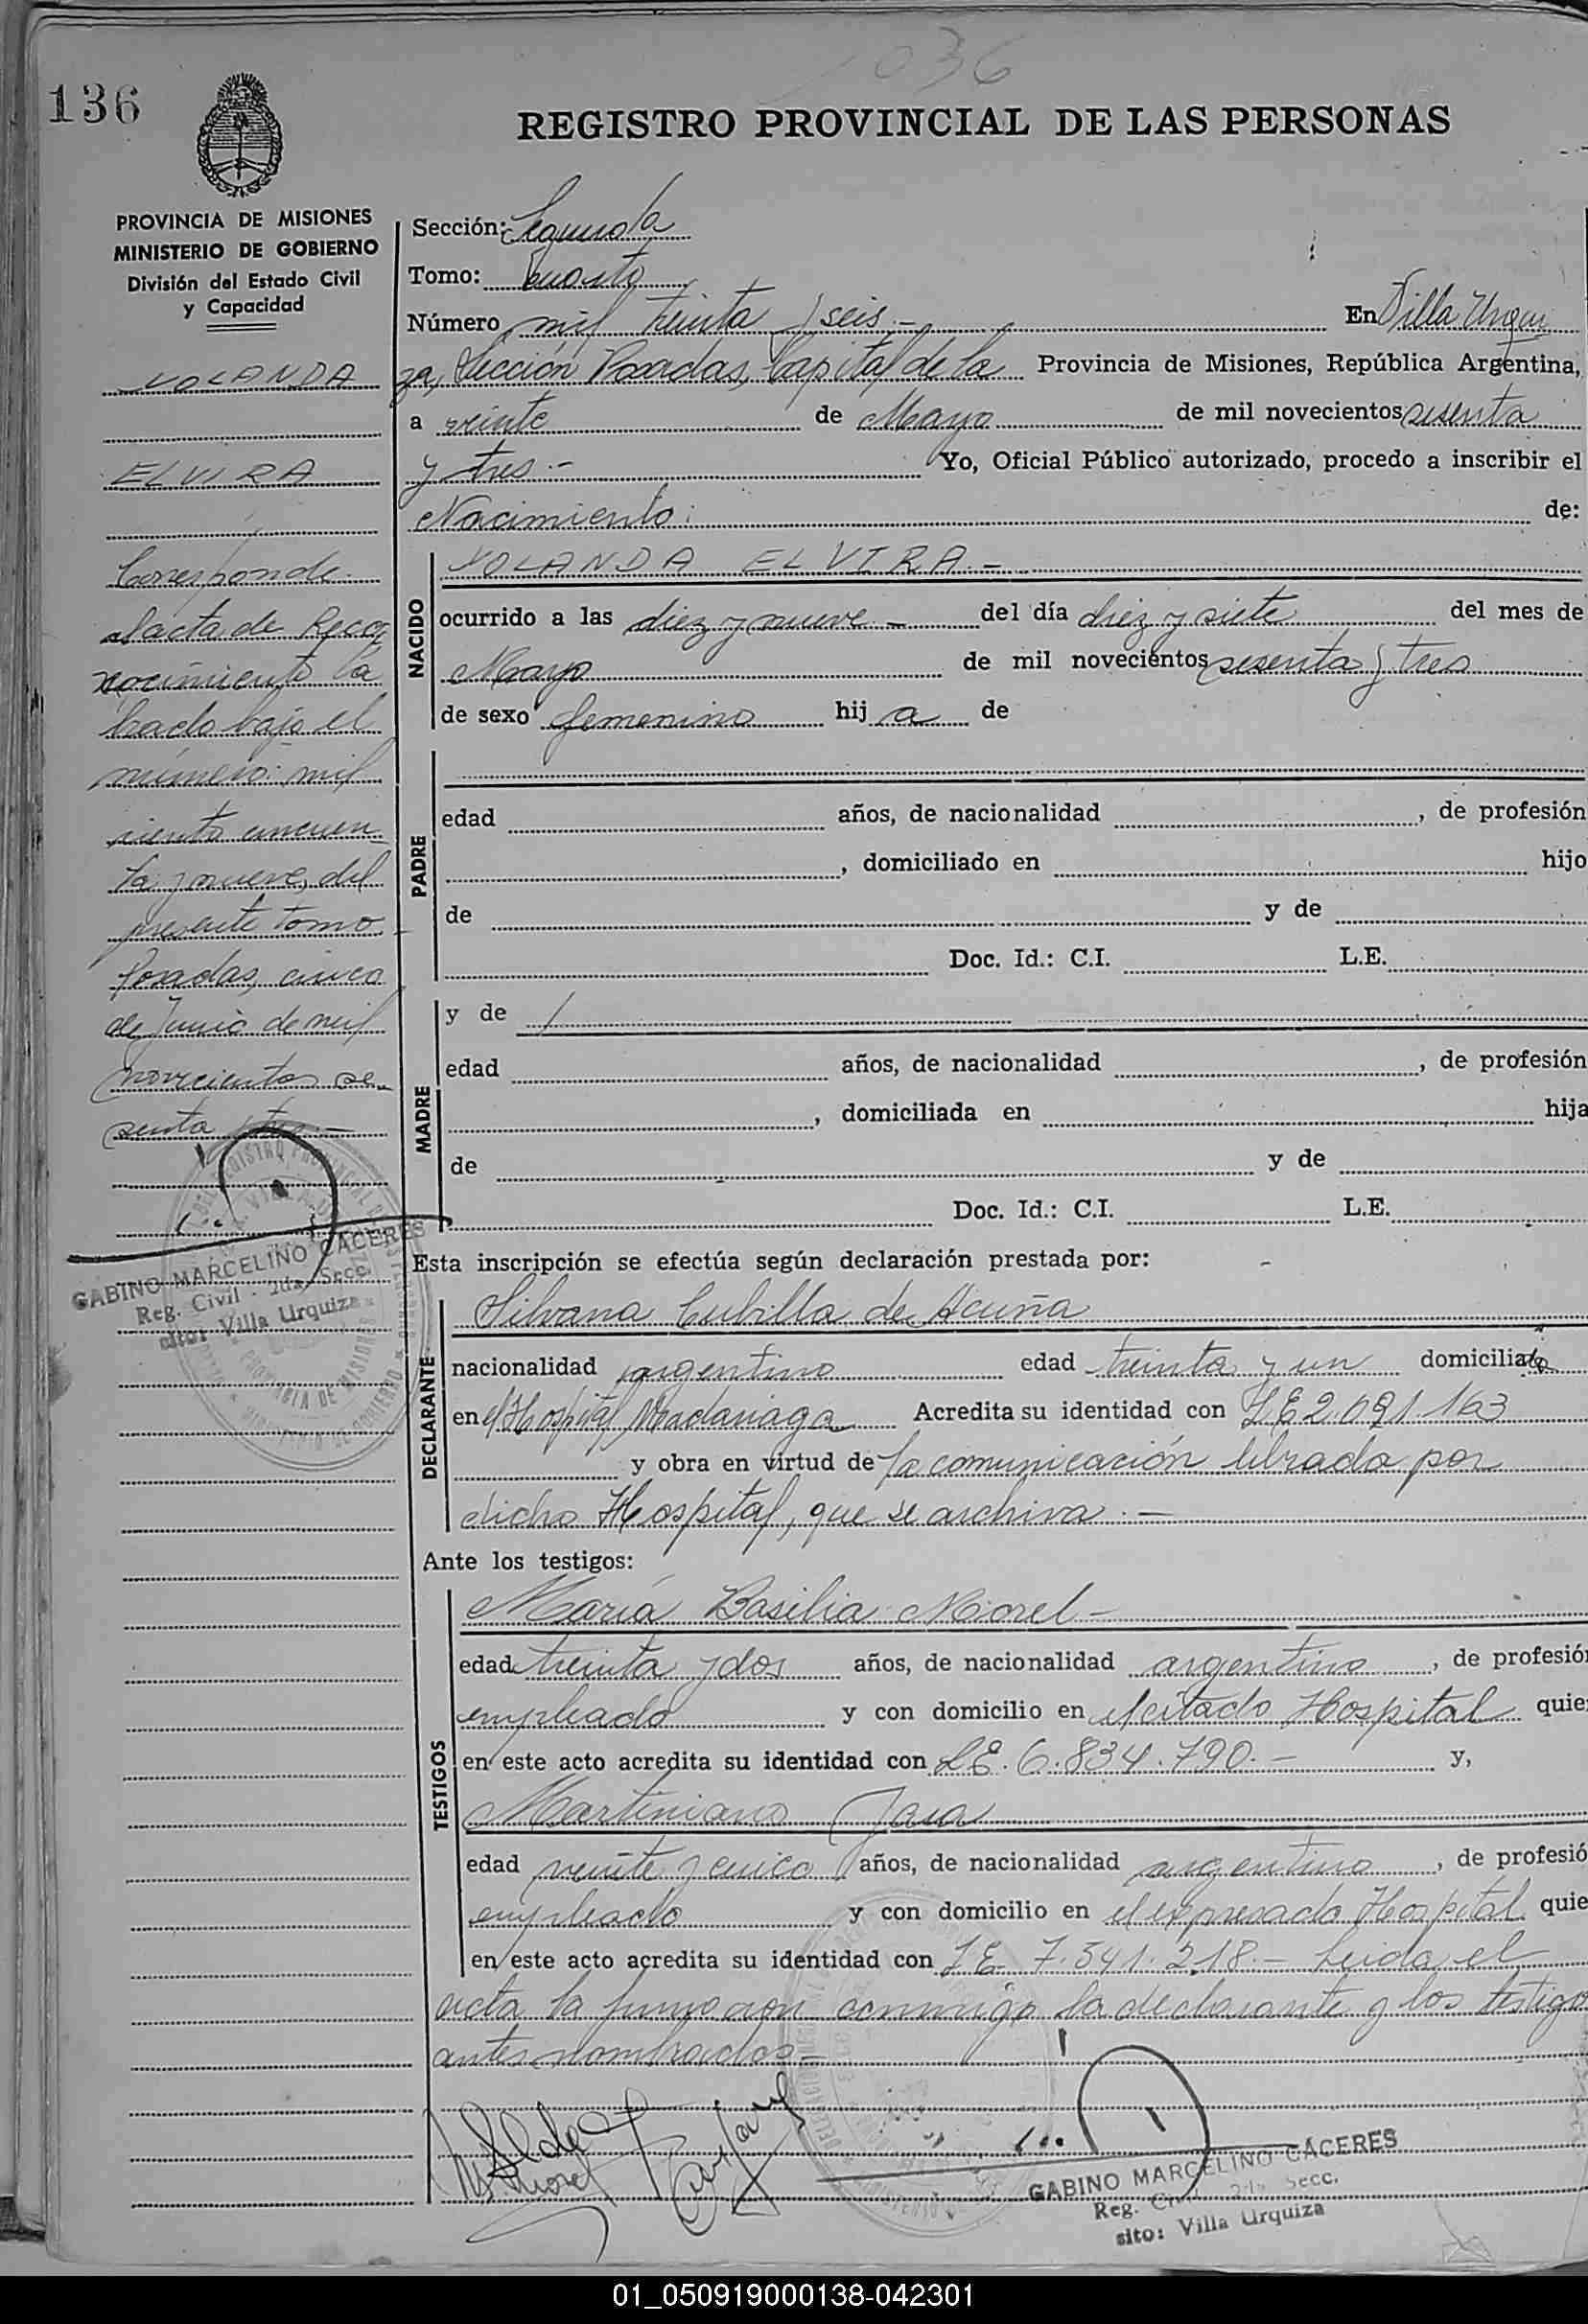 1036
136
REGISTRO PROVINCIAL DE LAS PERSONAS
PROVINCIA DE MISIONES
MINISTERIO DE GOBIERNO
División del Estado Civil
y Capacidad
YOLANDA
ELVIRA
Corresponde
al acta de Reco
nocimiento la
brado bajo el
número: mil
ciento cincuen
ta y nueve, del
presente tomo
Posadas, cinco
de Junio de mil
novecientos se
senta y tres.-
GABINO MARCELINO CACERES
Reg. Civil - 2da. Secc.
sito: Villa Urquiza
Sección: Segunda
Tomo: Cuarto
Número mil treinta y seis.- En Villa Urqui
za, Sección Posadas, Capital de la Provincia de Misiones, República Argentina,
a veinte de Mayo de mil novecientos sesenta
y tres.- Yo, Oficial Público autorizado, procedo a inscribir el
Nacimiento: de:
NACIDO
YOLANDA ELVIRA.-
ocurrido a las diez y nueve - del día diez y siete del mes de
Mayo de mil novecientos sesenta y tres
de sexo femenino hij a de
PADRE
edad años, de nacionalidad , de profesión
, domiciliado en hijo
de y de
Doc. Id.: C.I. L.E.
MADRE
y de /
edad años, de nacionalidad , de profesión
, domiciliada en hija
de y de
Doc. Id.: C.I. L.E.
Esta inscripción se efectúa según declaración prestada por:
DECLARANTE
Silvana Cubilla de Acuña
nacionalidad argentina edad treinta y un domiciliada
en el Hospital Madariaga Acredita su identidad con L.E 2.091.163
y obra en virtud de la comunicación librada por
dicho Hospital, que se archiva.-
Ante los testigos:
TESTIGOS
María Basilia Morel -
edad treinta y dos años, de nacionalidad argentina , de profesión
empleado y con domicilio en el citado Hospital quie
en este acto acredita su identidad con L.E. 6.834.790.- y,
Martiniano Jara
edad veinte y cinco años, de nacionalidad argentino , de profesió
empleado y con domicilio en el expresado Hospital quie
en este acto acredita su identidad con L.E. 7.541.218.- Leida el
acta la firmaron conmigo la declarante y los testigo
antes nombrados.-
GABINO MARCELINO CACERES
Reg. Civil 2da. Secc.
sito: Villa Urquiza
01_050919000138-042301